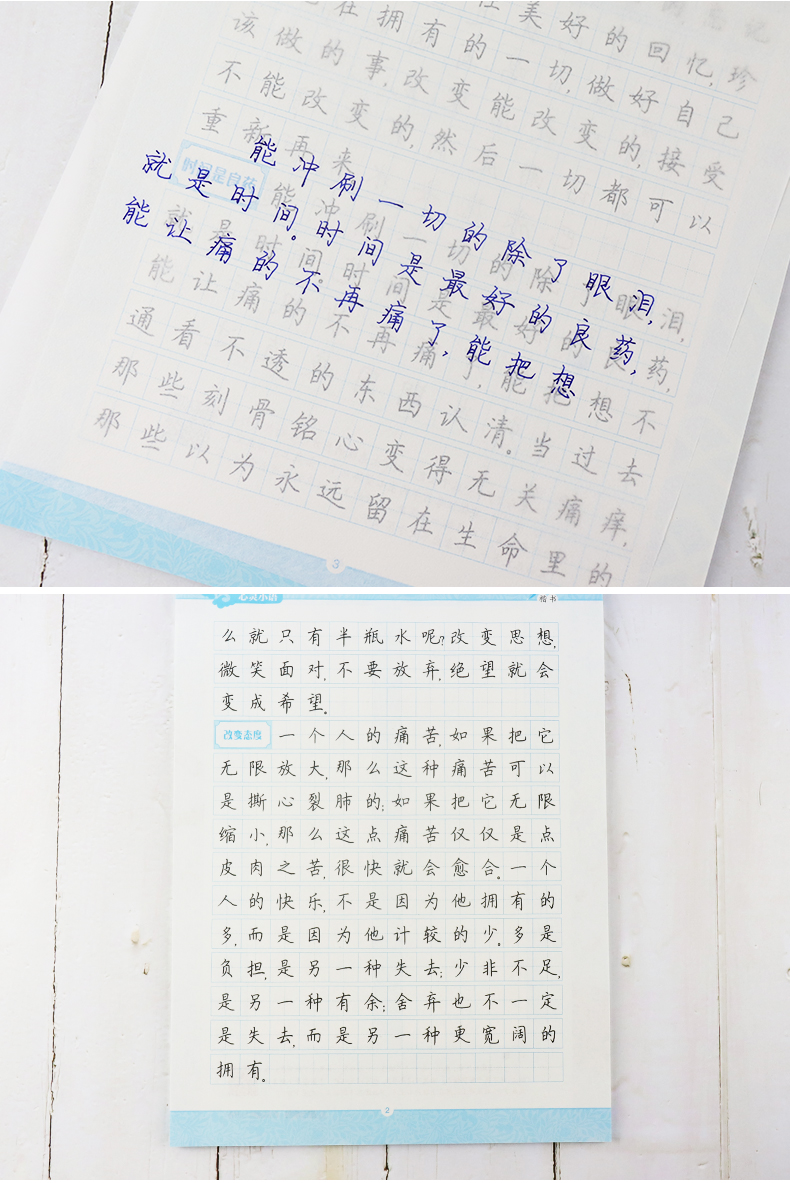 住美好的回忆,珍
在拥有的一切,做好自己
该做的事,改变能改变的,接受
不能改变的,然后一切都可以
重新再来
时间是良药
能冲刷一切的除了眼泪,
就是时间。时间是最好的良药,
能让痛的不再痛了,能把想
能冲刷一切的除了眼泪,
就是时间。时间是最好的良药,
能让痛的不再痛了,能把想不
通看不透的东西认清。当过去
那些刻骨铭心变得无关痛痒,
那些以为永远留在生命里的
3
心灵小语 楷书
么就只有半瓶水呢?改变思想,
微笑面对,不要放弃,绝望就会
变成希望。
改变态度 一个人的痛苦,如果把它
无限放大,那么这种痛苦可以
是撕心裂肺的;如果把它无限
缩小,那么这点痛苦仅仅是点
皮肉之苦,很快就会愈合。一个
人的快乐,不是因为他拥有的
多,而是因为他计较的少。多是
负担,是另一种失去;少非不足,
是另一种有余;舍弃也不一定
是失去,而是另一种更宽阔的
拥有。
2